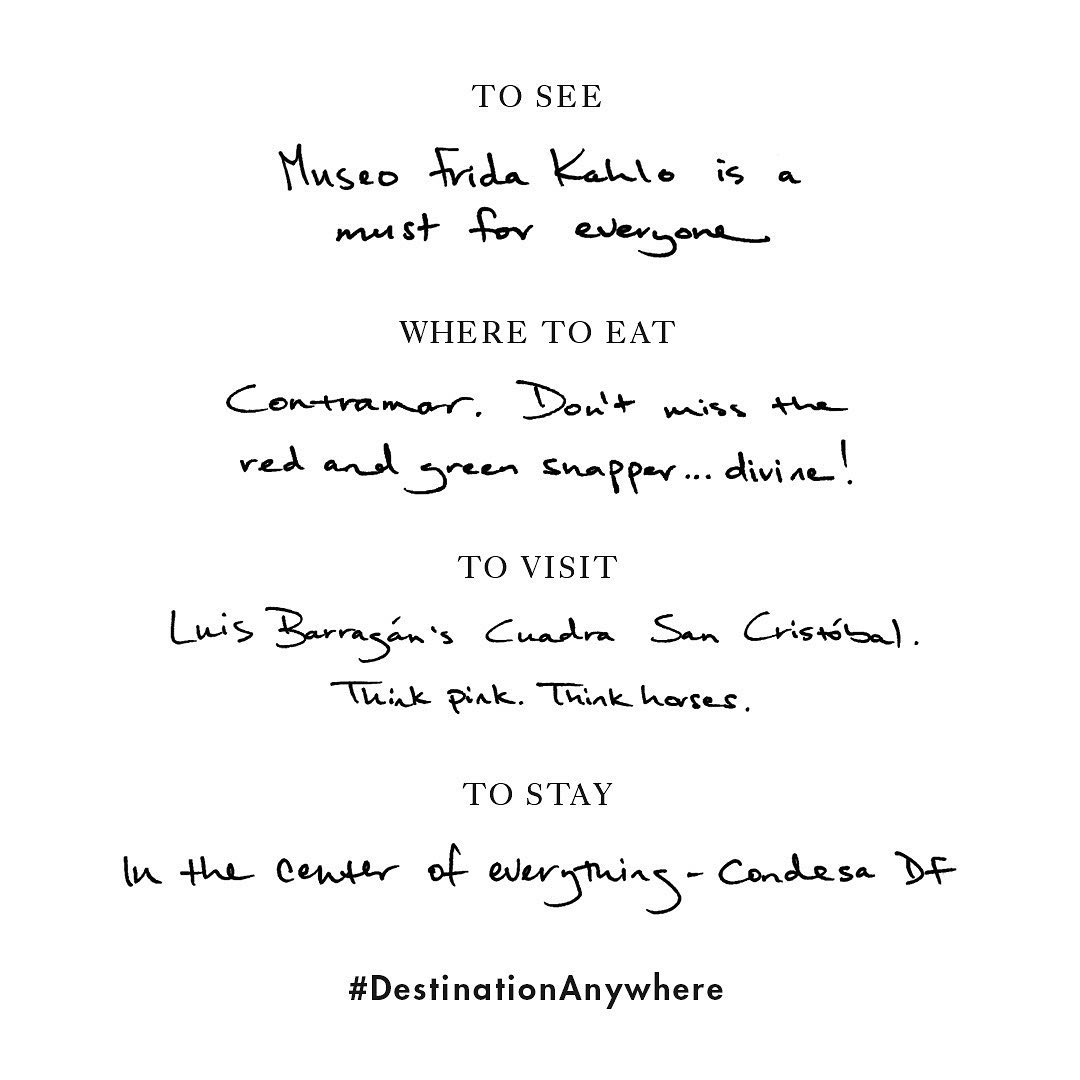 TO SEE
Museo Frida Kahlo is a
must for everyone
WHERE TO EAT
Contramar. Don't miss the
red and green snapper... divine!
TO VISIT
Luis Barragán's Cuadra San Cristóbal.
Think pink. Think horses.
TO STAY
In the center of everything - Condesa DF
#DestinationAnywhere